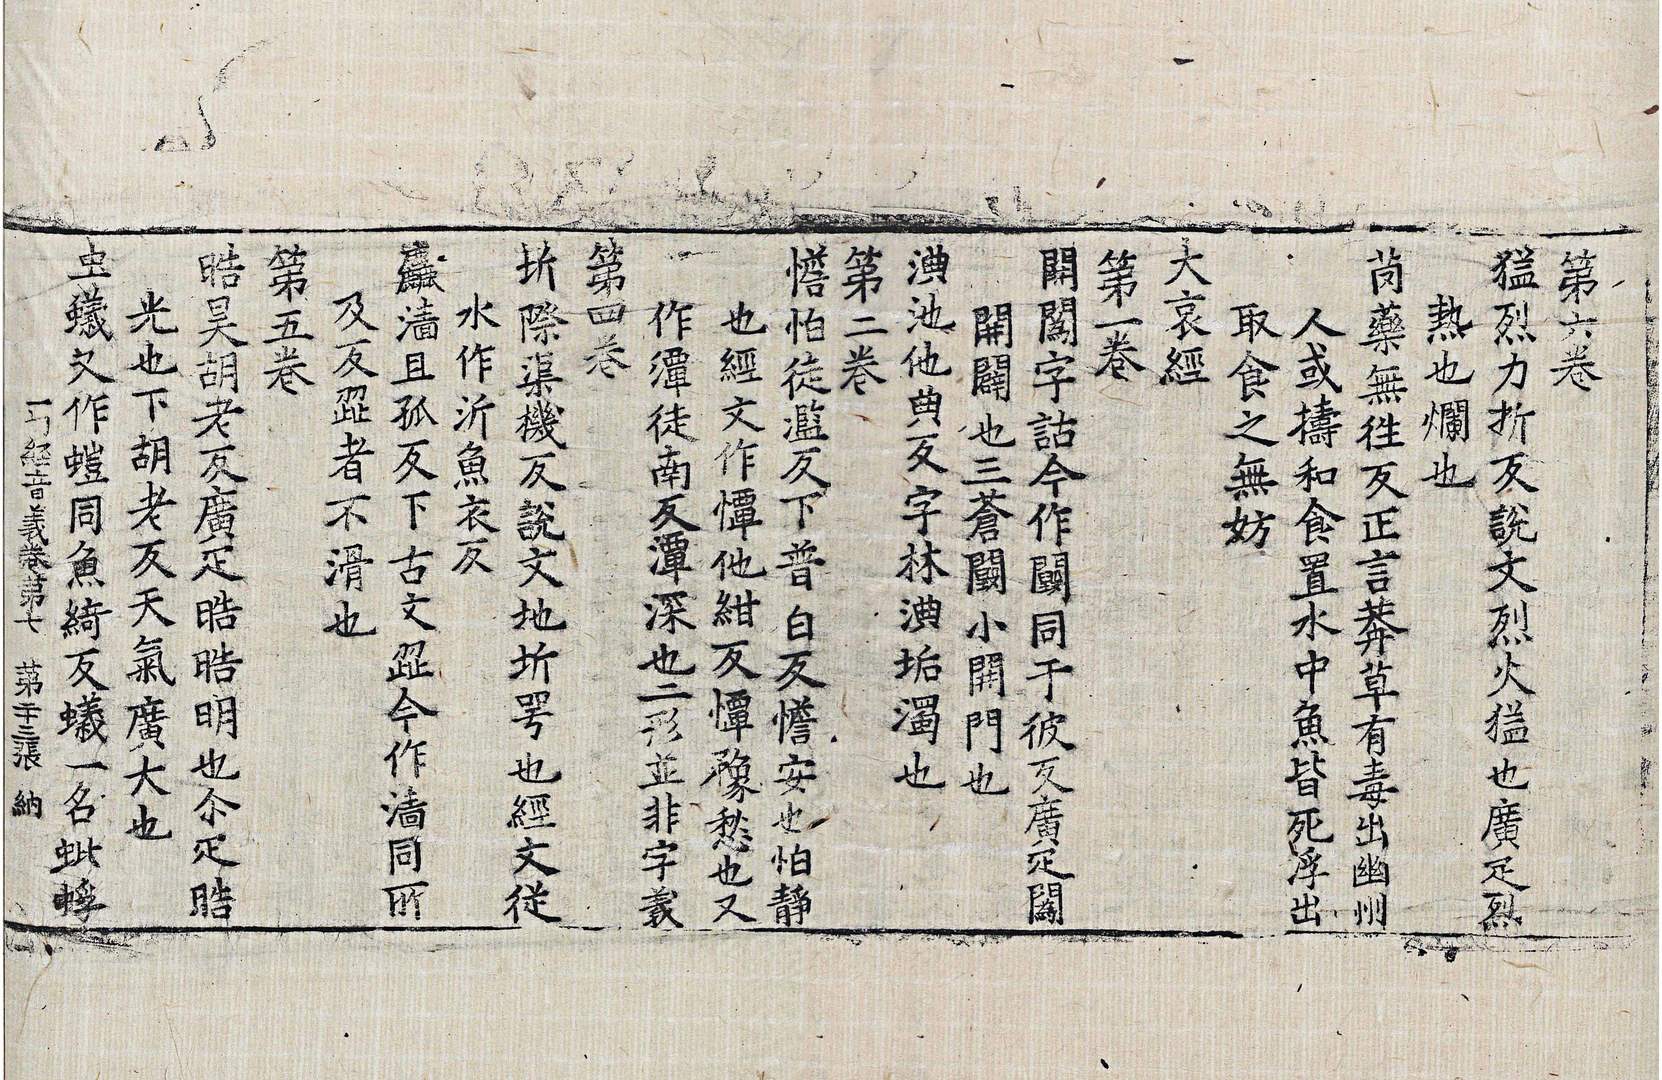 第六卷
猛烈力折反說文烈火猛也廣疋烈
熱也爛也
𦬆藥無徃反正言莽草有毒出幽州
人或擣和食置水中魚皆死浮出
取食之無妨
大哀經
第一卷
開闔字詁今作闢同于彼反廣疋闔
開闢也三蒼闢小開門也
淟池他典反字林淟垢濁也
第二卷
憺怕徒濫反下普白反憺安也怕靜
也經文作憛他紺反憛悇愁也又
作潭徒南反潭深也二形並非字義
第四卷
圻際渠機反說文地圻咢也經文從
水作沂魚衣反
麤濇且孤反下古文歰今作濇同所
及反歰者不滑也
第五卷
晧昊胡老反廣疋晧晧明也尒疋晧
光也下胡老反天氣廣大也
虫蟻又作螘同魚綺反蟻一名蚍蜉
一切經音義卷第七 第十三張 納